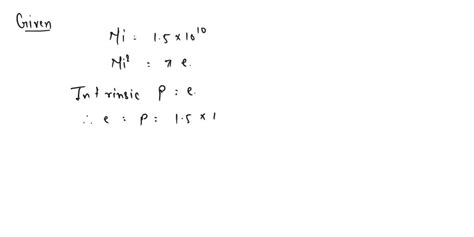 Given
Ni = 1.5 × 10¹⁰
Ni² = n e.
Intrinsic p = e.
∴ e = p = 1.5 × 1